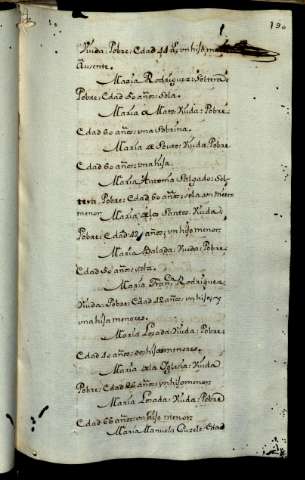 190
Viuda: Pobre: Edad 44 a.s un hijo
Ausente.
Maria Rodriguez: Soltera:
Pobre: Edad 50 años: Sola.
Maria de Mato: Viuda: Pobre:
Edad 60 años: una Sobrina.
Maria de Souto: Viuda: Pobre
Edad 60 años: una hija.
Maria Antonia Salgado: Sol-
tera: Pobre: Edad 60 años: sola un nieto
menor
Maria de los Santos: Viuda:
Pobre: Edad 42 años: un hijo menor
Maria Balada: Viuda: Pobre:
Edad 50 años: sola.
Maria Fran.ca Rodriguez:
Viuda: Pobre: Edad 42 años: un hijo, y
una hija menores.
Maria Losada: Viuda: Pobre:
Edad 40 años: dos hijos menores.
Maria de la Yglesia: Viuda
Pobre: Edad 36 años: un hijo menor:
Maria Losada: Viuda: Pobre
Edad 66 años: un hijo menor:
Maria Manuela: Edad